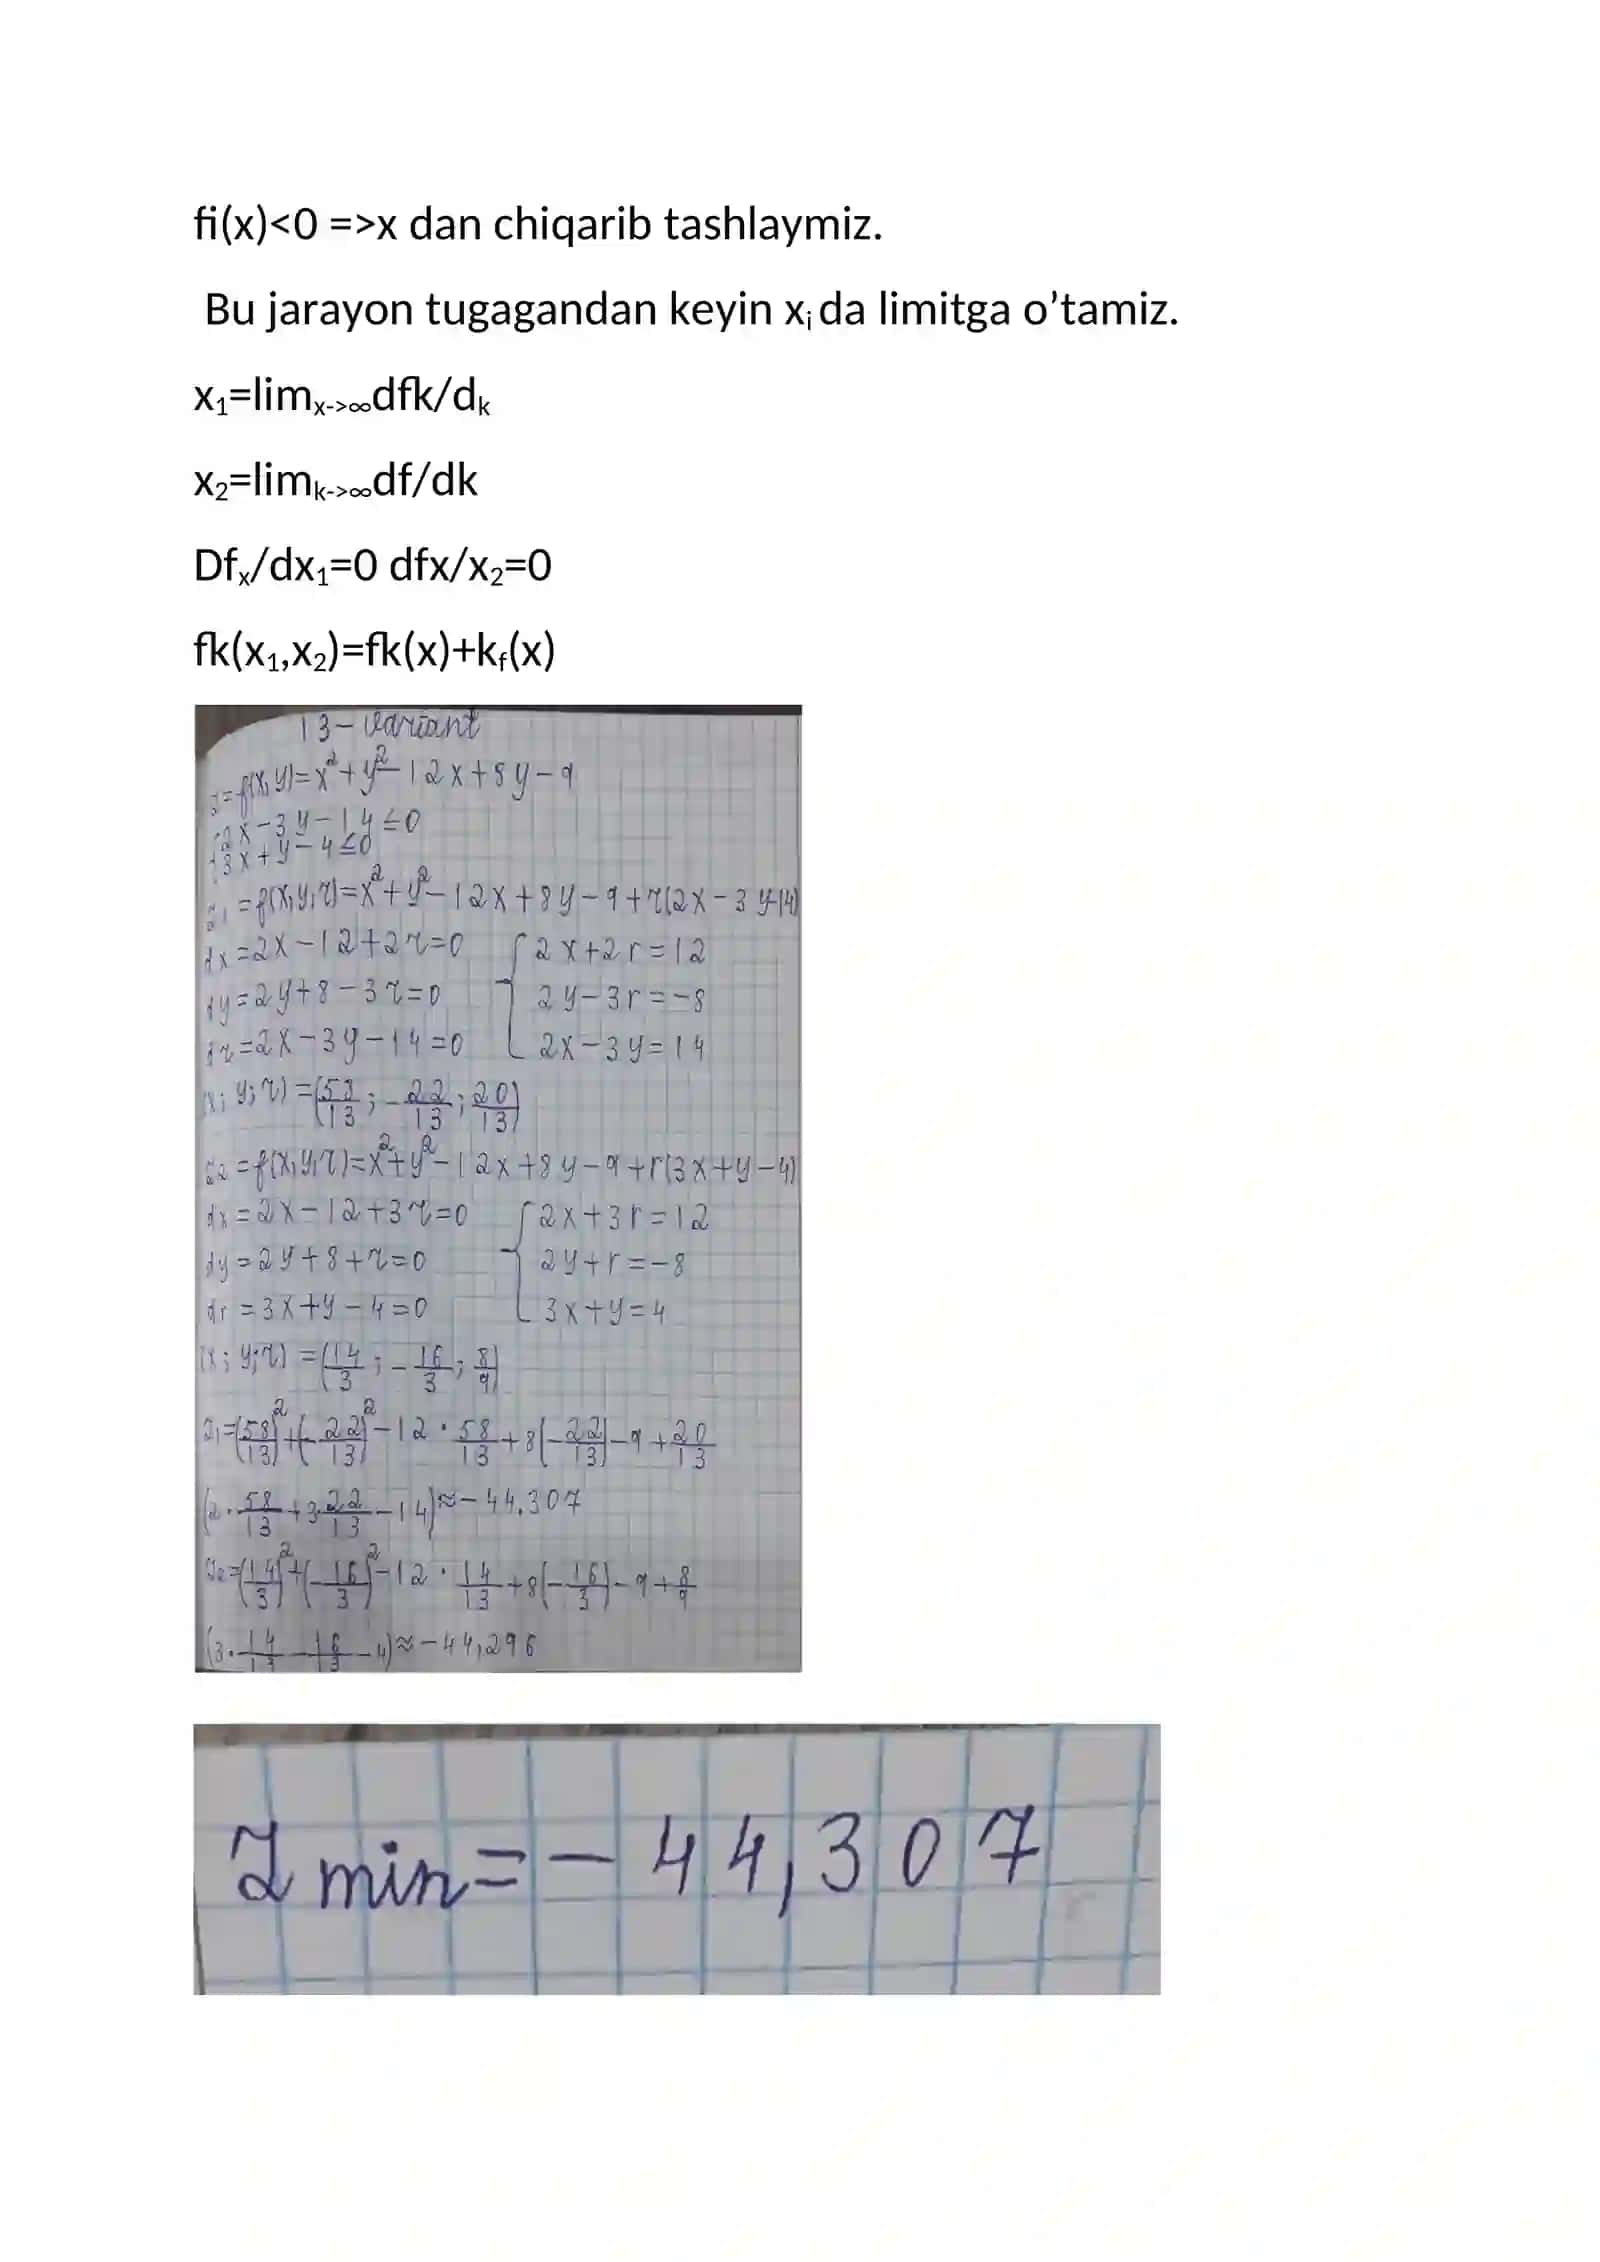 fi(x)<0 =>x dan chiqarib tashlaymiz.
Bu jarayon tugagandan keyin xᵢ da limitga o’tamiz.
x₁=limx->∞dfk/dk
x₂=limk->∞df/dk
Dfx/dx₁=0 dfx/x₂=0
fk(x₁,x₂)=fk(x)+kf(x)
13-variant
z=f(x,y)=x²+y²-12x+8y-9
2x-3y-14≤0
3x+y-4≤0
z₁=f(x,y,r)=x²+y²-12x+8y-9+r(2x-3y-14)
dx=2x-12+2r=0 2x+2r=12
dy=2y+8-3r=0 2y-3r=-8
dr=2x-3y-14=0 2x-3y=14
(x;y;r)=(58/13;-22/13;20/13)
z₂=f(x,y,r)=x²+y²-12x+8y-9+r(3x+y-4)
dx=2x-12+3r=0 2x+3r=12
dy=2y+8+r=0 2y+r=-8
dr=3x+y-4=0 3x+y=4
(x;y;r)=(14/3;-16/3;8/9)
z₁=(58/13)²+(-22/13)²-12·58/13+8(-22/13)-9+20/13
(2·58/13+3·22/13-14)≈-44,307
z₂=(14/3)²+(-16/3)²-12·14/13+8(-16/3)-9+8/9
(3·14/13-16/3-4)≈-44,296
Z min=-44,307